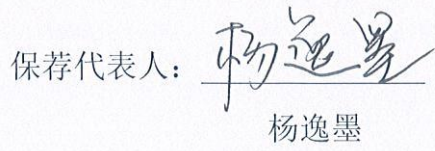 保荐代表人：杨逸墨
杨逸墨